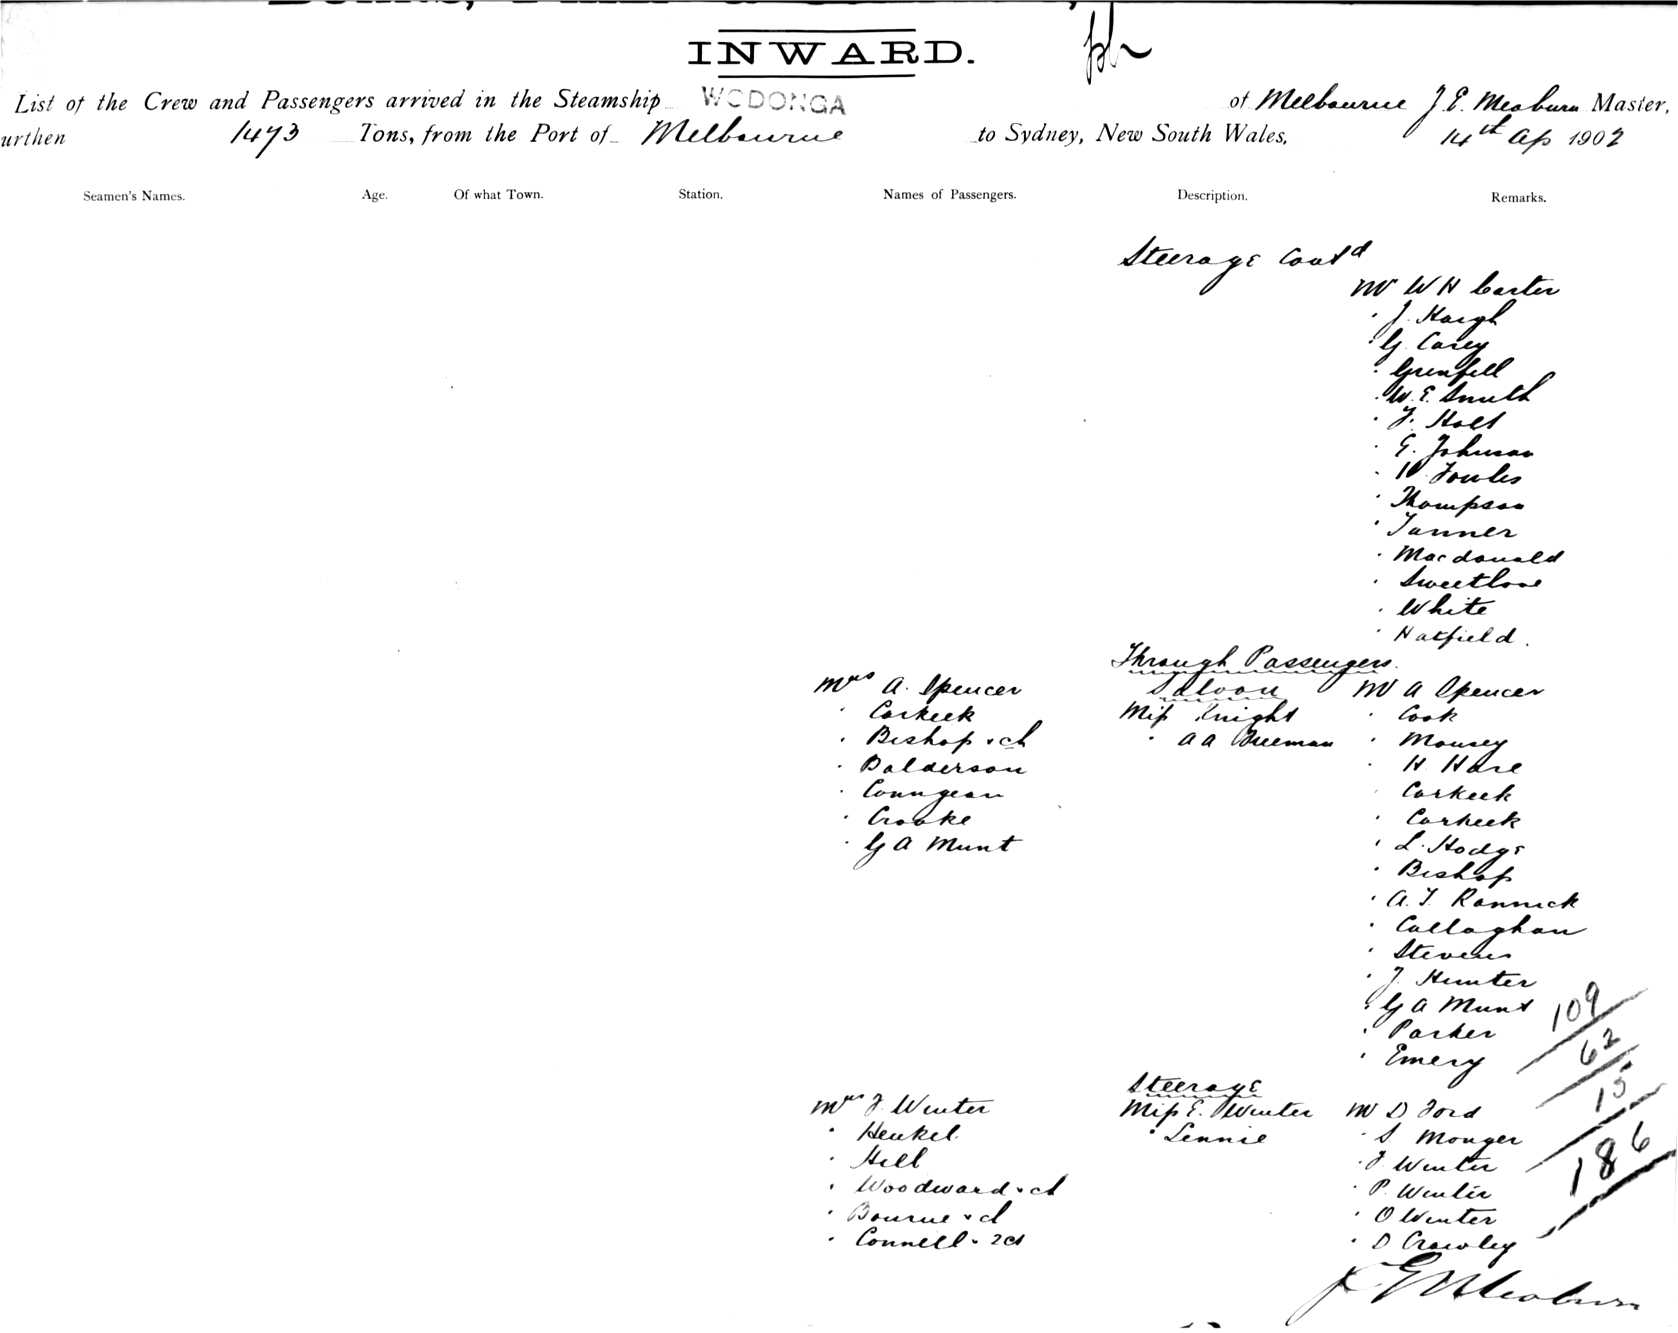 INWARD.
List of the Crew and Passengers arrived in the Steamship WODONGA of Melbourne J. E. Meaburn Master,
urthen 1473 Tons, from the Port of Melbourne to Sydney, New South Wales, 14th Ap 1902
Seamen's Names. Age. Of what Town. Station. Names of Passengers. Description. Remarks.
Steerage Contd
Mr W H Carter
" J. Haigh
" G. Casey
" Grenfell
" W. E. Smith
" F. Holt
" E. Johnson
" Fowles
" Thompson
" Tanner
" Macdonald
" Sweetlove
" White
" Hatfield.
Through Passengers.
Saloon
Mrs A. Spencer Miss Knight Mr A Spencer
" Carkeek " A A Freeman " Cook
" Bishop & ch " Mousey
" Balderson " H Hare
" Conngean " Carkeek
" Crooke " Carkeek
" G A Munt " L. Hodge
" Bishop
" A. T. Rannick
" Callaghan
" Stevens
" J. Hunter
" G A Munt
" Parker
" Emery
109
62
15
186
Steerage
Mrs F. Winter Miss E. Winter Mr D Ford
" Henkel. " Lennie " S Monger
" Hill " F Winter
" Woodward & ch " P. Winter
" Bourne & ch " O Winter
" Connell & 2 ch " D Crowley
J. E. Meaburn